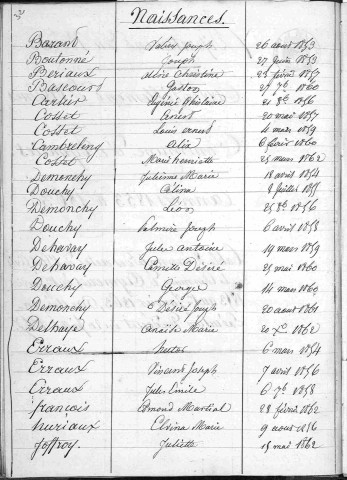 Naissances.
Bazant Valier Joseph 26 aout 1853
Boutonné Joseph 27 Juin 1853
Beriaux Marie Christine 23 février 1857
Bascourt Gaston 27 7bre 1860
Cartier Eugénie Ghislaine 21 8bre 1856
Cosset Ernest 20 mai 1857
Cosset Louis Ernest 4 mars 1859
Cambreling Alix 6 février 1860
Cosset Marie henriette 25 mars 1862
Demonchy Julienne Marie 18 avril 1854
Douchy Célina 8 Juillet 1855
Demonchy Léon 25 8bre 1856
Douchy Palmire Joseph 6 avril 1858
Dehavay Jules Antoine 19 mars 1859
Dehavay Camille Désiré 25 mai 1860
Douchy George 14 mars 1860
Demonchy Désiré Joseph 20 aout 1861
Delhaye Anaïse Marie 20 Xbre 1862
Erraux 6 mars 1854
Erraux Vincent Joseph 7 avril 1856
Erraux Jules Emile 6 7bre 1858
françois Edmond Martial 28 février 1862
huriaux Elvina Marie 9 aout 1816
Joffroy. Juliette 15 mai 1862